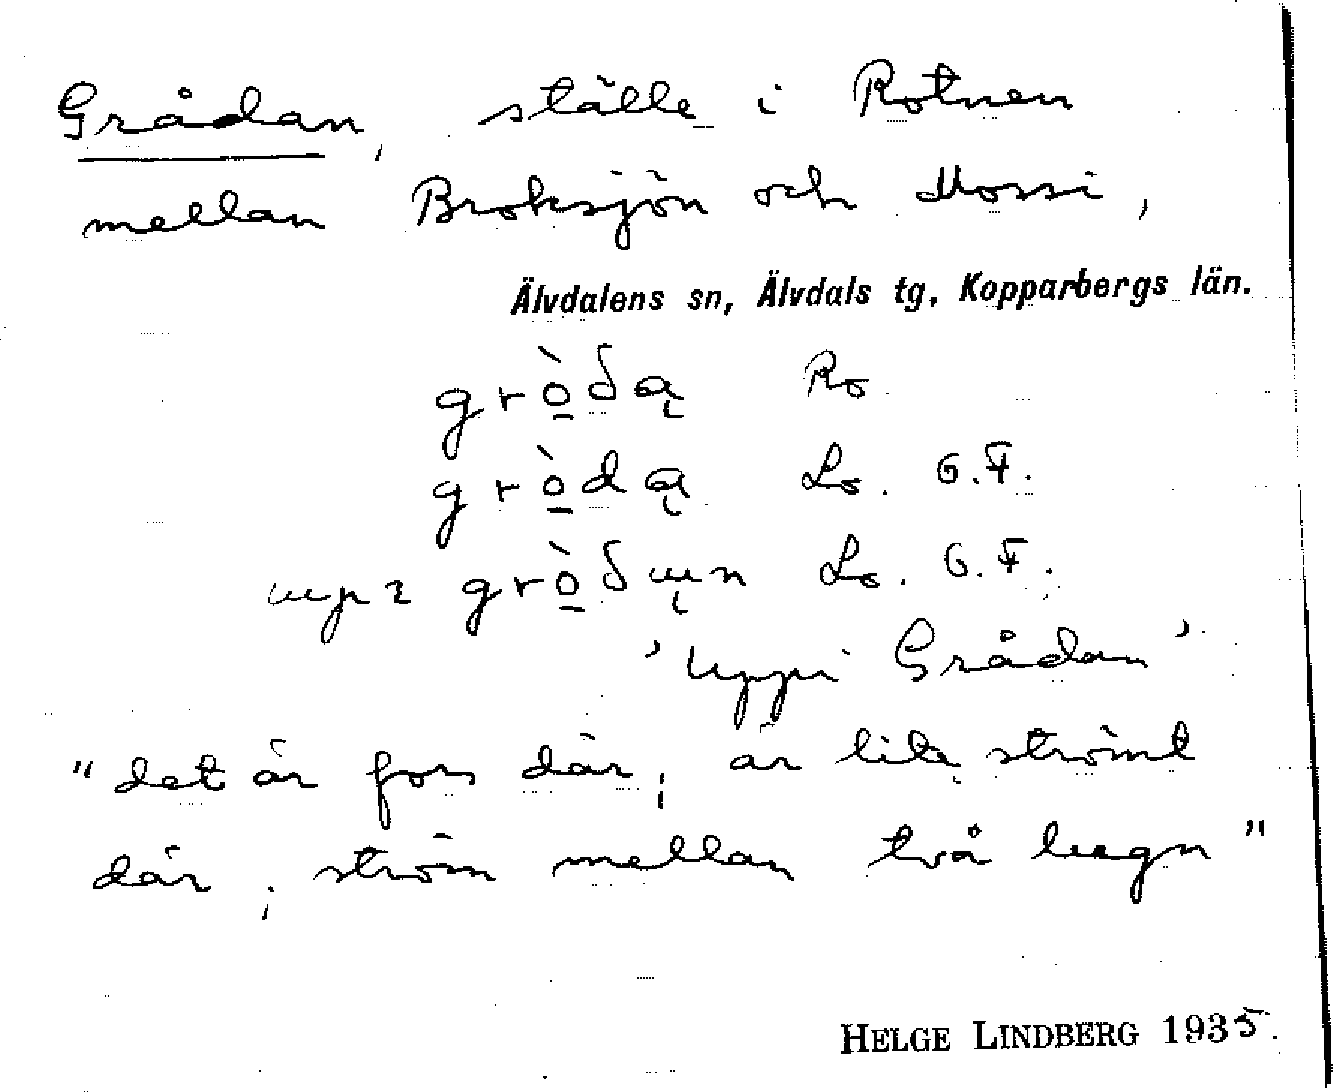 Grådan, ställe i Rotnen
mellan Broksjön och Mossi,
Älvdalens sn, Älvdals tg, Kopparbergs län.
grò̱δą Ro
grò̱dą Lo. G.F.
grò̱δɯ̨n Lo. G.F.
'uppi Grådan'
"det är fors där, är lite strömt
där, ström mellan två lugn"
HELGE LINDBERG 1935.